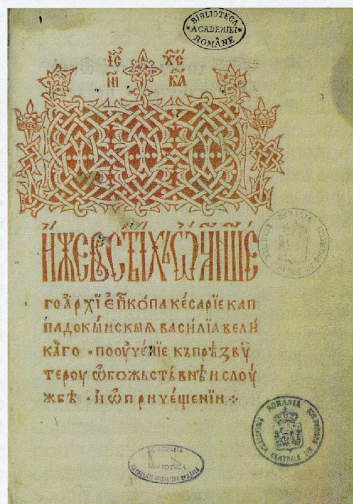 BIBLIOTECA ACADEMIEI ROMÂNE
І҃С Х҃С
НИ КА
И́ЖЕ В СТ҃ЫХЪ Ѿц҃А НАШЕ
го а҆рхїе҆п҃копа кесарїе кап
падокы́искыѧ василїа вели
ка́го · поѹ҆че́нїе къ прѣзвѵ
терѹ ѡ҆ бож͡ьствѣ́внѣи слѹ́
жбѣ · и҆ ѡ҆ причеще́нїи
ROMANIA
BIBLIOTECA
ROMANIA
CENTRALA